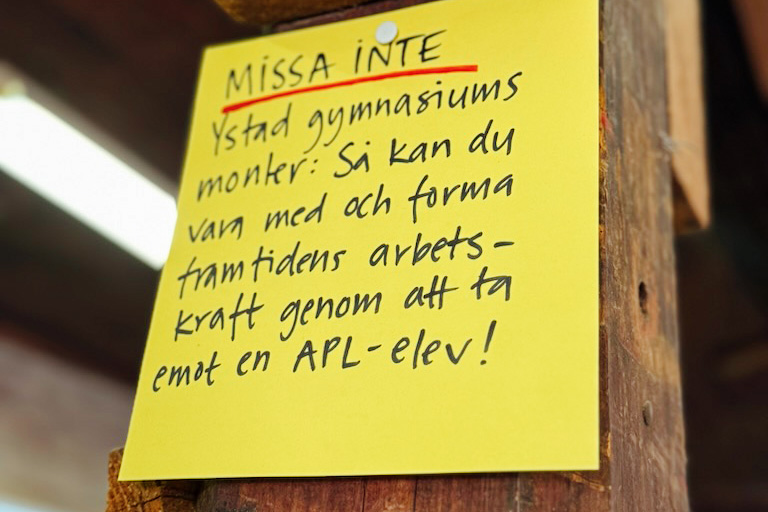 MISSA INTE
Ystad gymnasiums
monter: Så kan du
vara med och forma
framtidens arbets-
kraft genom att ta
emot en APL-elev!